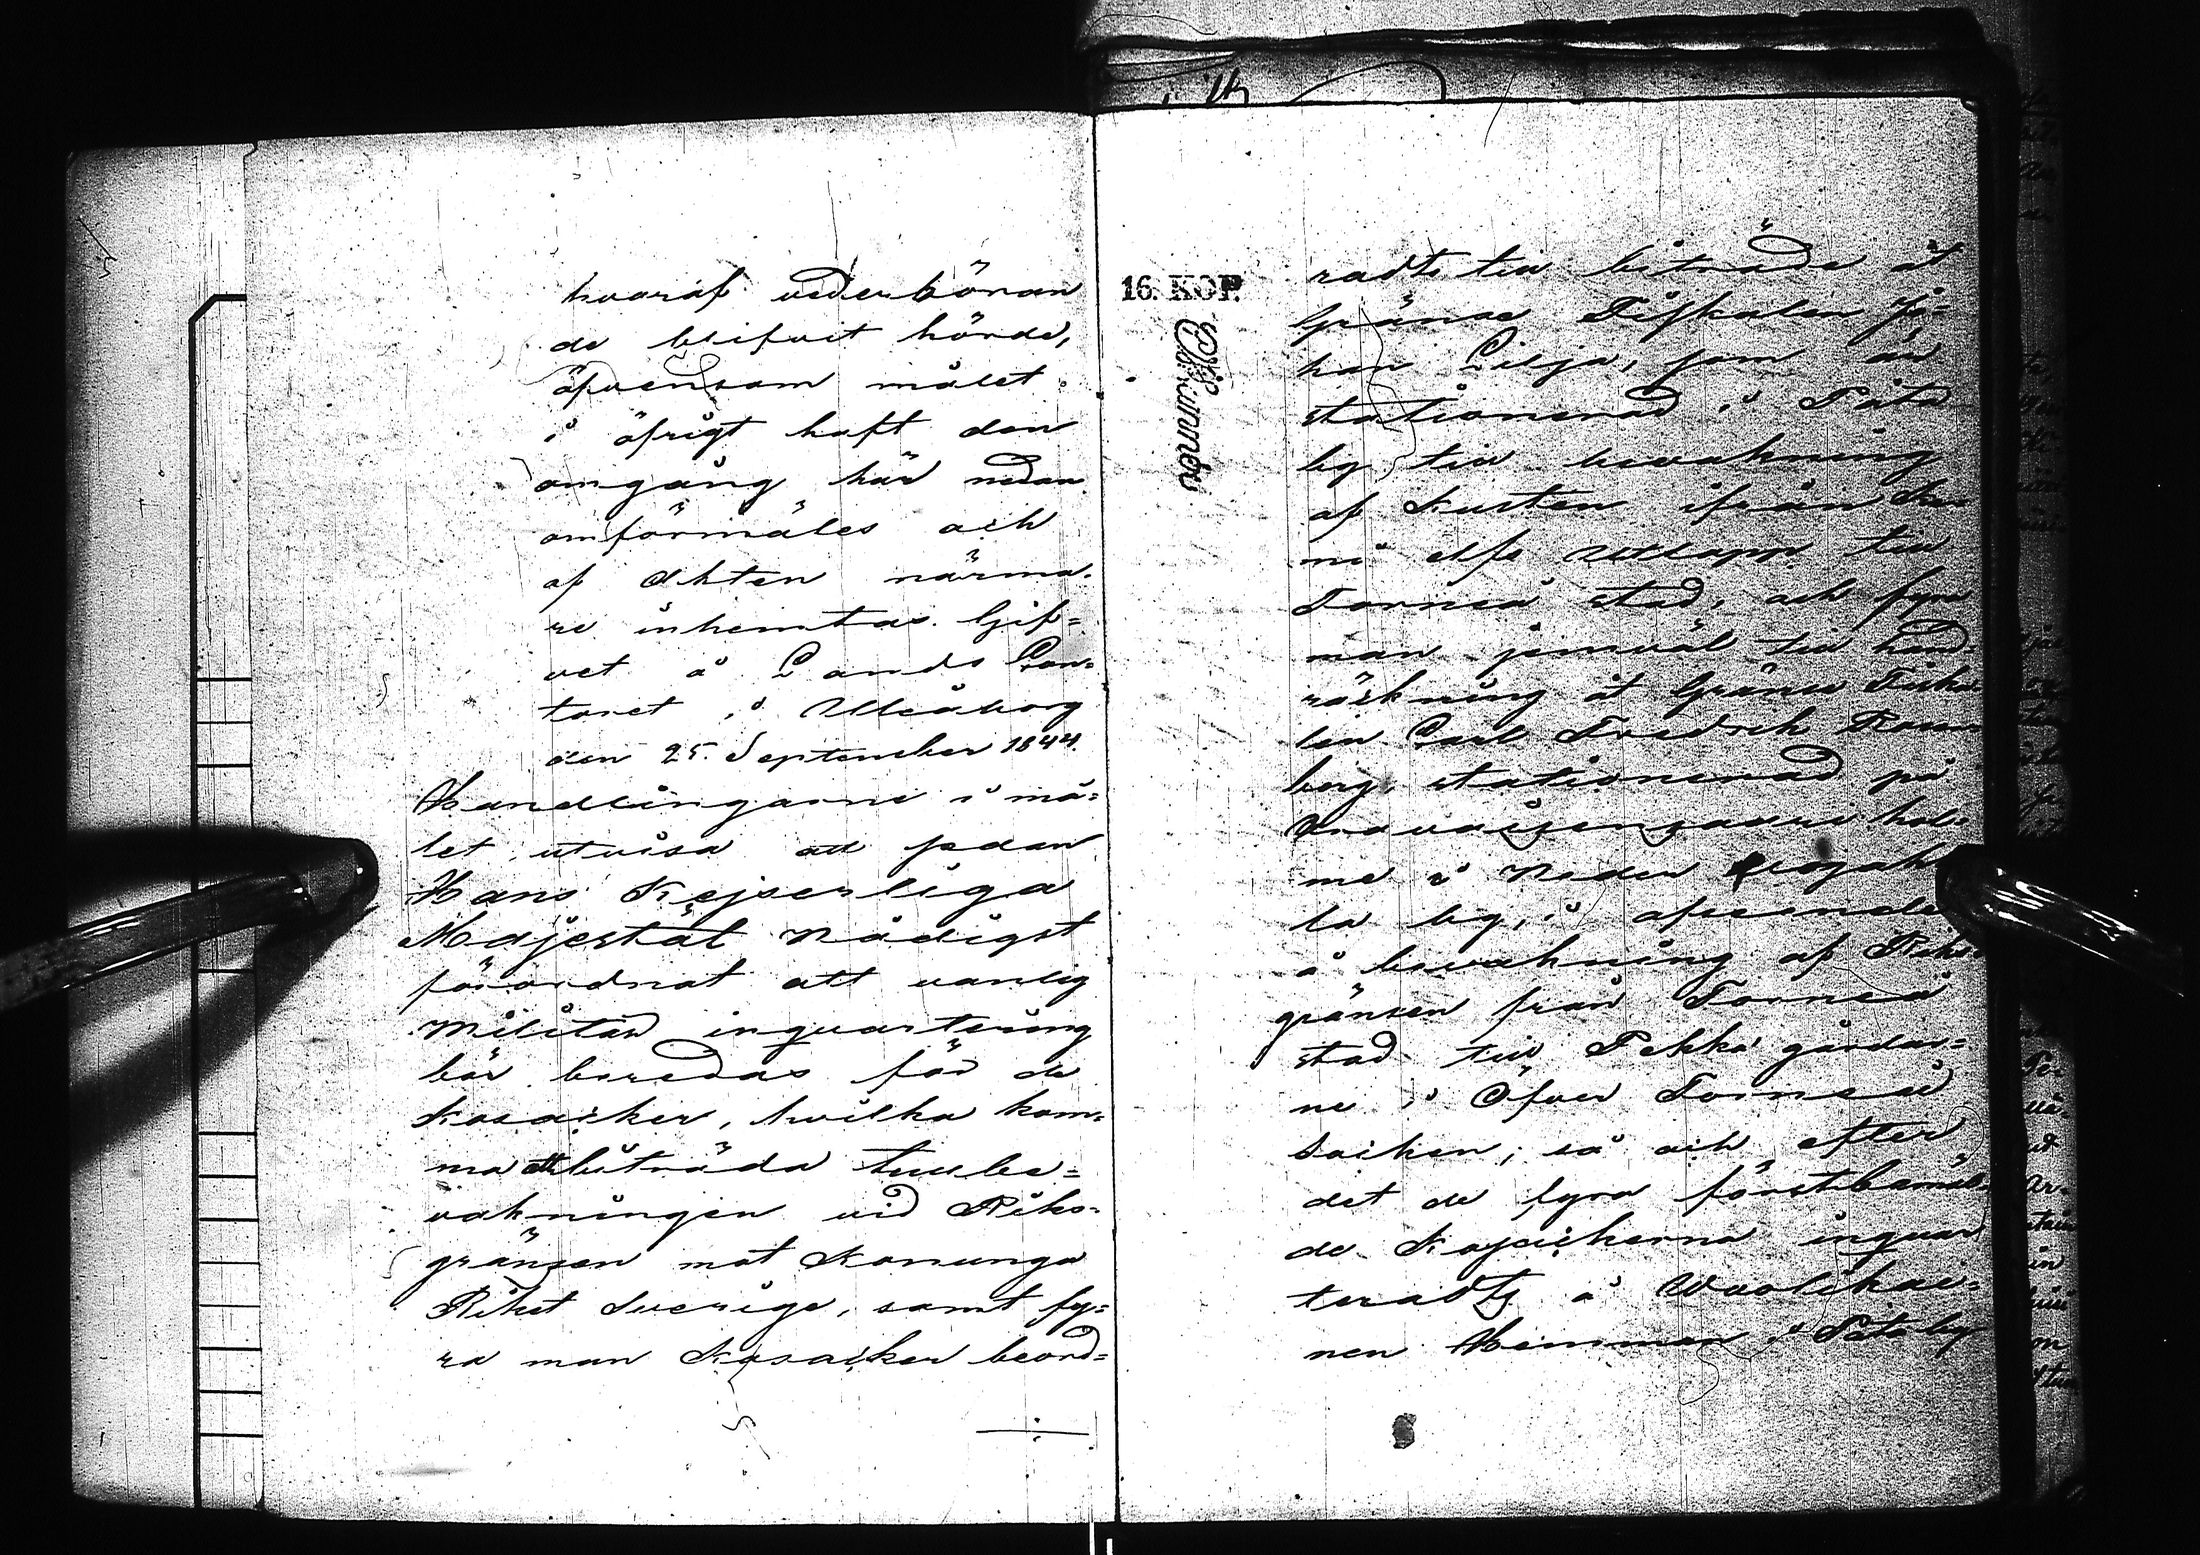 hvaraf vederböran
de blifvit hörde,
äfvensom målet
i öfrigt haft den
omgång här nedan
omförmäles och
af Akten närma-
re inhemtas. Gif=
vet å Lands Con=
toret i Uleåborg
den 25. September 1844.
Handlingarne i må=
let utvisa att sedan
Hans Kejserliga
Majestät Nådigst
förordnat att vanlig
Militär inquartering
bör beredas för de
Kosacker, hvilka kom=
ma att biträda tullbe=
vakningen vid Riks=
gränsen mot Konunga
Riket Sverige, samt fy=
ra man Kosacker beord=
16. KOP.
radts till biträde åt
Gränse Fiskalen Jo=
han Lilja, som är
stationerad i
by till bevakning
af Kusten ifrån Ke=
mi elfs Utlopp till
Torneå stad, och fyra
man jemväl till hand=
räckning åt Gränse Fiska=
len Carl Fredrik
berg, stationerad på
hol=
me i Neder
la by, i afseende
å bevakning af Riks=
gränsen från Torneå
stad till Pekka gårdar=
ne i Öfver Torneå
Socken; så och efter
det de fyra förstbemäl=
de Kosackerna inquar
teradts å
nen Hemman i by